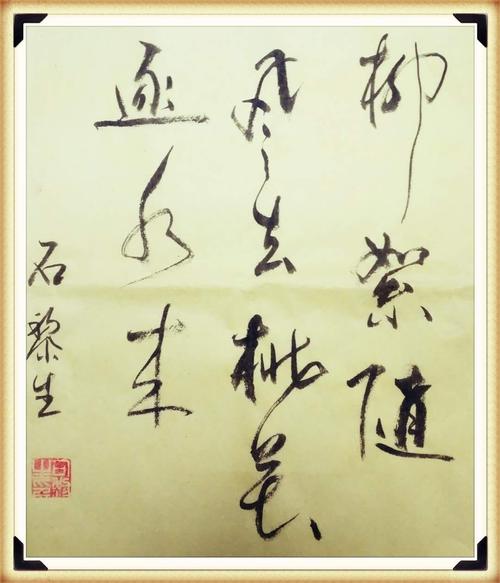 柳絮随
风去桃花
逐水来
石黎生